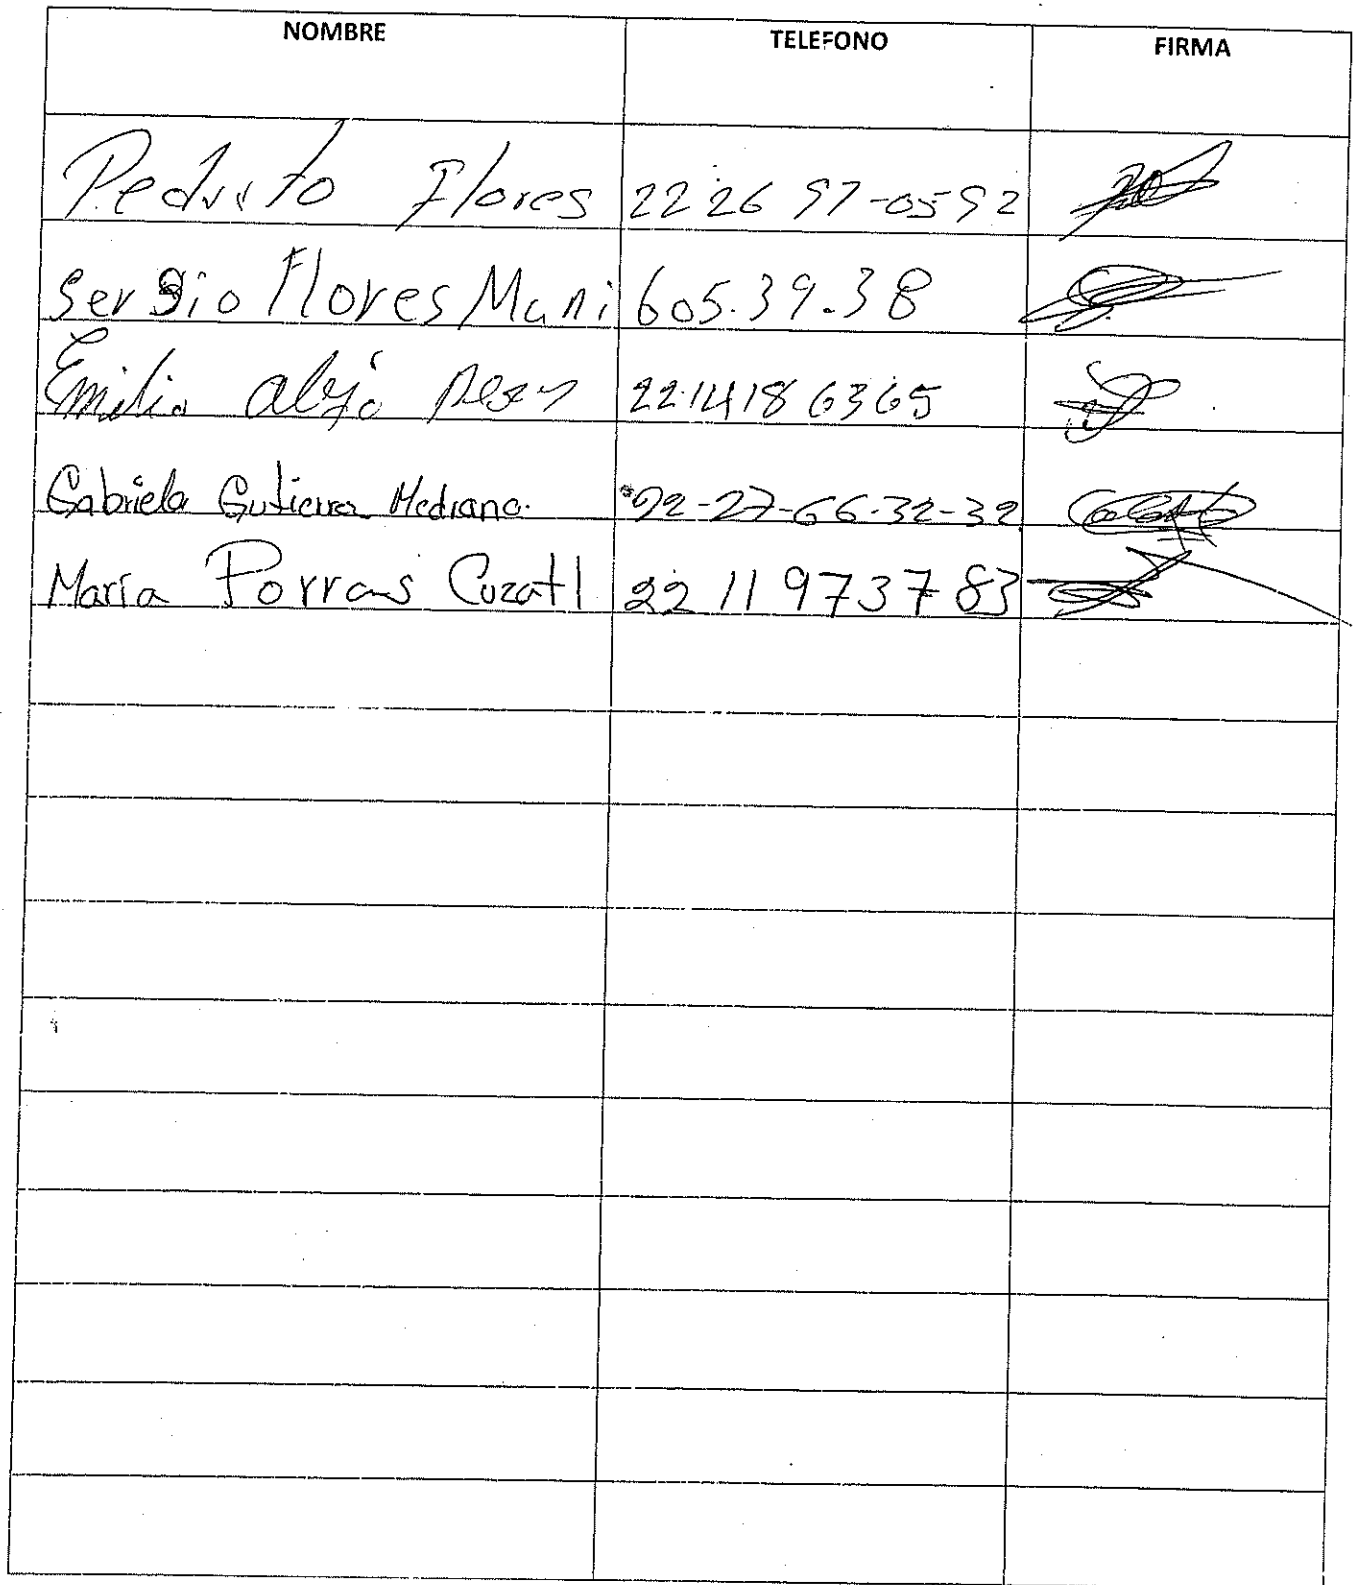 NOMBRE TELEFONO FIRMA
Pedrito Flores 22 26 97-05 92
Sergio Flores Muni 605.39.38
Emilio alejo 22 14 18 6365
Gabriela Gutierrez Medrano. 22-27-66-32-32
María Porras Cuzatl 22 11 973783